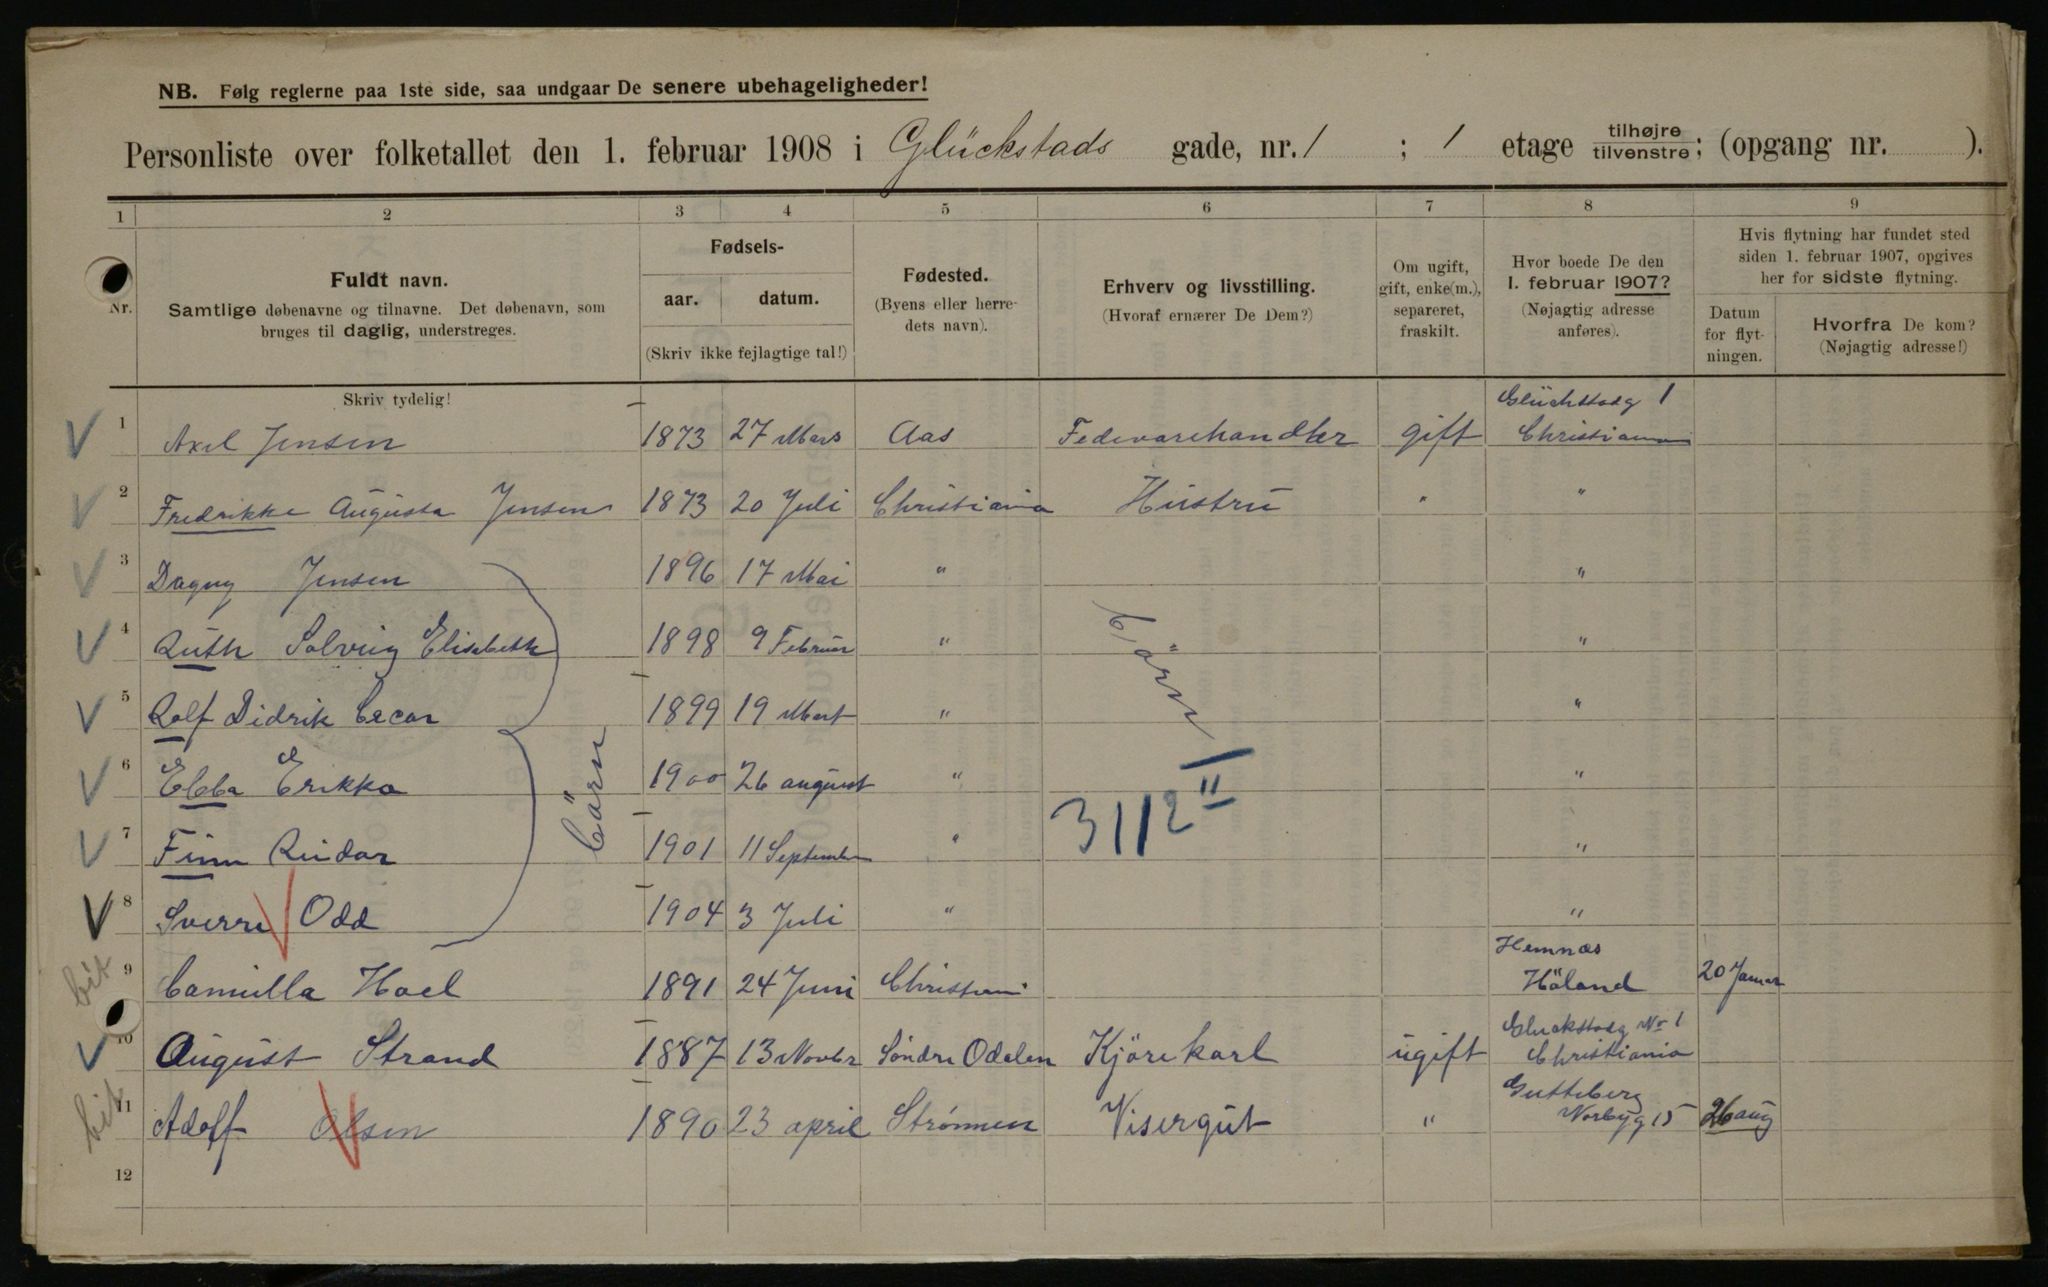 NB. Følg reglerne paa 1ste side, saa undgaar De senere ubehageligheder!
Personliste over folketallet den 1. februar 1908 i Glückstads gade, nr. 1 ; 1 etage tilhøjre tilvenstre; (opgang nr. ).
1 2 3 4 5 6 7 8 9
Nr.
Fuldt navn.
Samtlige døbenavne og tilnavne. Det døbenavn, som
bruges til daglig, understreges.
Skriv tydelig!
Fødsels-
aar. datum.
(Skriv ikke fejlagtige tal!)
Fødested.
(Byens eller herre-
dets navn).
Erhverv og livsstilling.
(Hvoraf ernærer De Dem?)
Om ugift,
gift, enke(m.),
separeret,
fraskilt.
Hvor boede De den
1. februar 1907?
(Nøjagtig adresse
anføres).
Hvis flytning har fundet sted
siden 1. februar 1907, opgives
her for sidste flytning.
Datum
for flyt-
ningen.
Hvorfra De kom?
(Nøjagtig adresse!)
Glückstadg 1
1 Axel Jensen 1873 27 Mars Aas Fedevarehandler gift Christiania
2 Fredrikke Augusta Jensen 1873 20 Juli Christiania Hustru " "
3 Dagny Jensen 1896 17 Mai " "
4 Ruth Solveig Elisabeth 1898 9 Februar " "
börn
5 Rolf Didrik Cecar 1899 19 Mart " "
6 Ebba Erikka 1900 26 august " "
börn
3112 II
7 Finn Reidar 1901 11 September " "
8 Sverre Odd 1904 3 Juli " "
Hemnæs
bit 9 Camilla Hoel 1891 24 Juni Christiani Höland 20 Januar
Gluckstadg No 1
10 August Strand 1887 13 Novbr Söndre Odalen Kjörekarl ugift Christiania
Gutteberg
bit 11 Adolf Olsen 1890 23 april Strømmen Visergut " Norbyg 15 26 aug
12